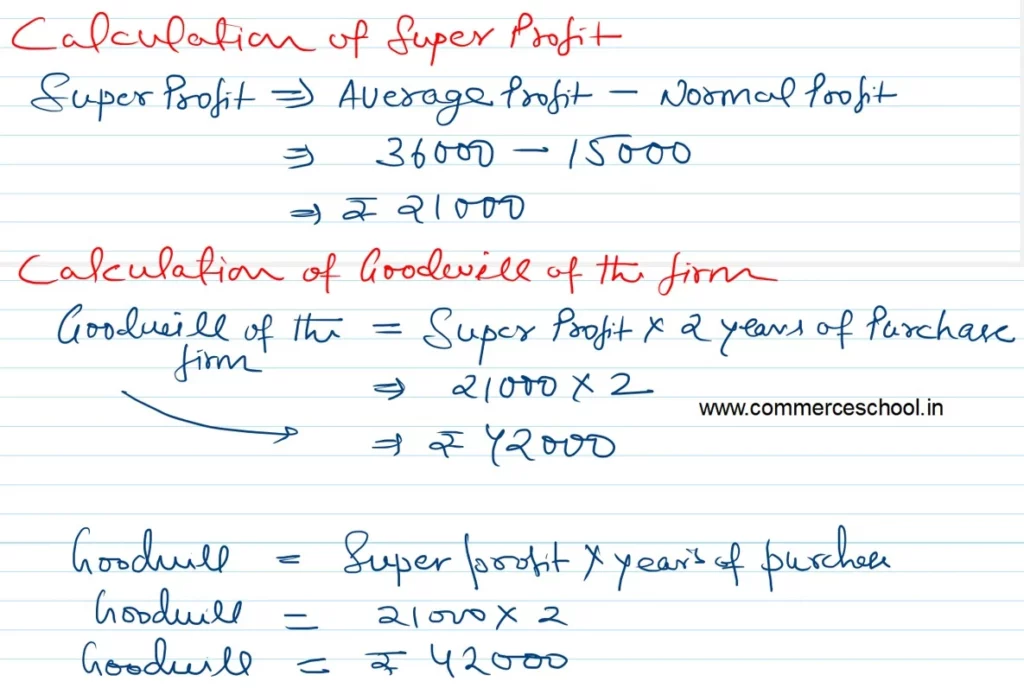 Calculation of Super Profit
Super Profit ⇒ Average Profit - Normal Profit
⇒ 36000 - 15000
⇒ ₹ 21000
Calculation of Goodwill of the firm
Goodwill of the = Super Profit × 2 years of Purchase
firm
⇒ 21000 × 2
www.commerceschool.in
⇒ ₹ 42000
Goodwill = Super profit × year's of purchase
Goodwill = 21000 × 2
Goodwill = ₹ 42000